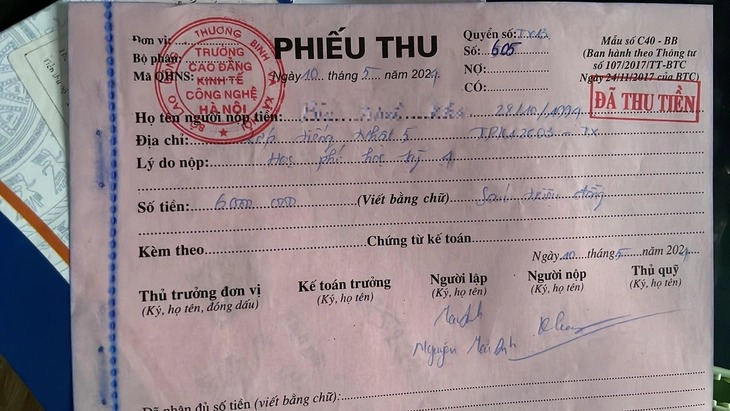 Đơn vị:
Bộ phận:
Mã QHNS:
BỘ LAO ĐỘNG THƯƠNG BINH VÀ XÃ HỘI
TRƯỜNG
CAO ĐẲNG
KINH TẾ
CÔNG NGHỆ
HÀ NỘI
PHIẾU THU
Ngày 10 tháng 5 năm 2024
Quyển số:
Số: 605
NỢ:
CÓ:
Mẫu số C40 - BB
(Ban hành theo Thông tư
số 107/2017/TT-BTC
Ngày 24/11/2017 của BTC)
ĐÃ THU TIỀN
Họ tên người nộp tiền:
Địa chỉ: Tiếng Nhật 5
Lý do nộp: Học phí học kỳ
Số tiền: 6.000.000 (Viết bằng chữ) Sáu triệu đồng
Kèm theo Chứng từ kế toán
Ngày 10 tháng 5 năm 2024
Thủ trưởng đơn vị Kế toán trưởng Người lập Người nộp Thủ quỹ
(Ký, họ tên, đóng dấu) (Ký, họ tên) (Ký, họ tên) (Ký, họ tên) (Ký, họ tên)
Nguyễn
Đã nhận đủ số tiền (viết bằng chữ):